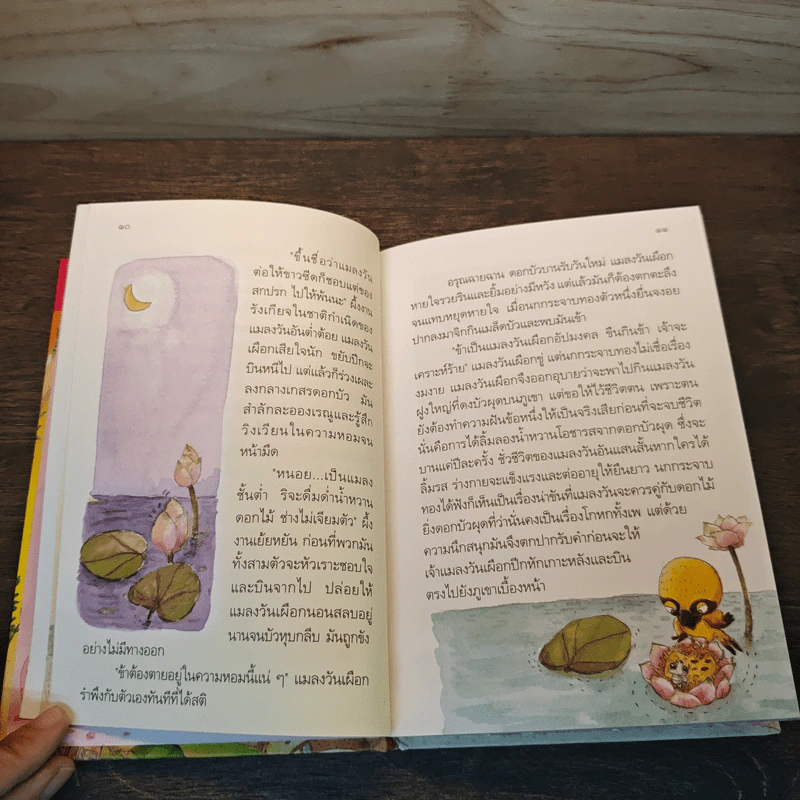 ๑๐
"ขึ้นชื่อว่าแมลงวัน
ต่อให้ขาวซีดก็ชอบแต่ของ
สกปรก ไปให้พ้นนะ" ผึ้งงาน
รังเกียจในชาติกำเนิดของ
แมลงวันอันต่ำต้อย แมลงวัน
เผือกเสียใจนัก ขยับปีกจะ
บินหนีไป แต่แล้วก็ร่วงเผละ
ลงกลางเกสรดอกบัว มัน
สำลักละอองเรณูและรู้สึก
วิงเวียนในความหอมจน
หน้ามืด
"หนอย...เป็นแมลง
ชั้นต่ำ ริจะดื่มด่ำน้ำหวาน
ดอกไม้ ช่างไม่เจียมตัว" ผึ้ง
งานเย้ยหยัน ก่อนที่พวกมัน
ทั้งสามตัวจะหัวเราะชอบใจ
และบินจากไป ปล่อยให้
แมลงวันเผือกนอนสลบอยู่
นานจนบัวหุบกลีบ มันถูกขัง
อย่างไม่มีทางออก
"ข้าต้องตายอยู่ในความหอมนี้แน่ ๆ" แมลงวันเผือก
รำพึงกับตัวเองทันทีที่ได้สติ
๑๑
อรุณฉายฉาน ดอกบัวบานรับวันใหม่ แมลงวันเผือก
หายใจรวยรินและยิ้มอย่างมีหวัง แต่แล้วมันก็ต้องตกตะลึง
จนแทบหยุดหายใจ เมื่อนกกระจาบทองตัวหนึ่งยื่นจงอย
ปากลงมาจิกกินเมล็ดบัวและพบมันเข้า
"ข้าเป็นแมลงวันเผือกอัปมงคล ขืนกินข้า เจ้าจะ
เคราะห์ร้าย" แมลงวันเผือกขู่ แต่นกกระจาบทองไม่เชื่อเรื่อง
งมงาย แมลงวันเผือกจึงออกอุบายว่าจะพาไปกินแมลงวัน
ฝูงใหญ่ที่ดงบัวผุดบนภูเขา แต่ขอให้ไว้ชีวิตตน เพราะตน
ยังต้องทำความฝันข้อหนึ่งให้เป็นจริงเสียก่อนที่จะจบชีวิต
นั่นคือการได้ลิ้มลองน้ำหวานโอชารสจากดอกบัวผุด ซึ่งจะ
บานแค่ปีละครั้ง ชั่วชีวิตของแมลงวันอันแสนสั้นหากใครได้
ลิ้มรส ร่างกายจะแข็งแรงและต่ออายุให้ยืนยาว นกกระจาบ
ทองได้ฟังก็เห็นเป็นเรื่องน่าขันที่แมลงวันจะควรคู่กับดอกไม้
ยิ่งดอกบัวผุดที่ว่านั่นคงเป็นเรื่องโกหกทั้งเพ แต่ด้วย
ความนึกสนุกมันจึงตกปากรับคำก่อนจะให้
เจ้าแมลงวันเผือกปีกหักเกาะหลังและบิน
ตรงไปยังภูเขาเบื้องหน้า